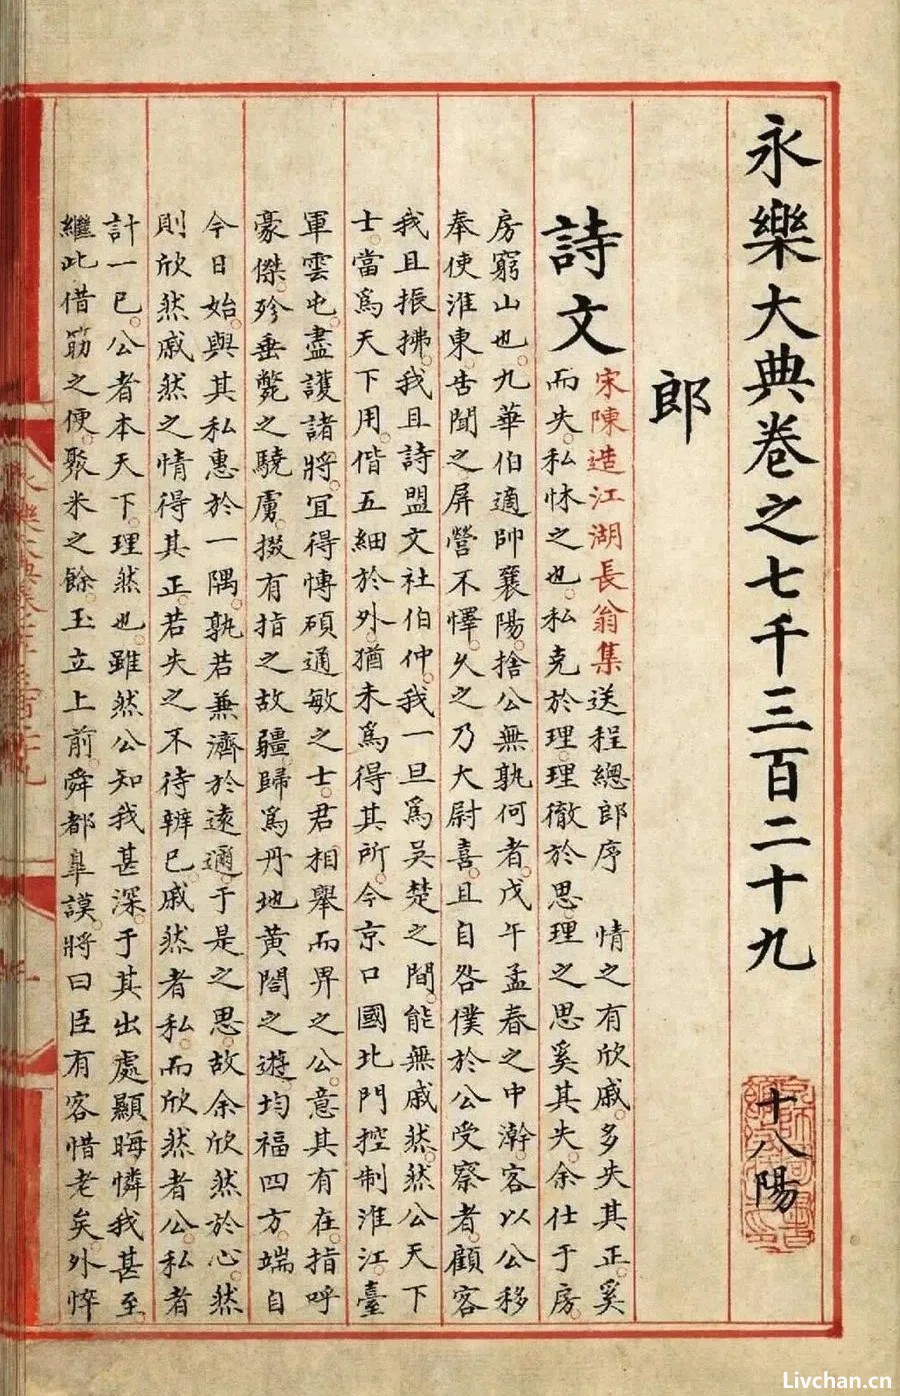 永樂大典卷之七千三百二十九 十八陽
郎
詩文 宋陳造江湖長翁集送程總郎序 情之有欣戚。多失其正。奚
而失。私怵之也。私克於理。理徹於思。理之思奚其失。余仕于房。
房窮山也。九華伯適帥襄陽。捨公無孰何者。戊午孟春之中澣。客以公移
奉使淮東。告聞之。屏營不懌。久之乃大尉喜。且自咎僕於公受察者。顧客
我且振拂。我且詩盟文社伯仲。我一旦爲吳楚之間。能無戚然。然公天下
士。當爲天下用。偕五細於外。猶未爲得其所。今京口國北門控制淮江。臺
軍雲屯。盡護諸將。冝得愽碩通敏之士。君相舉而畀之公。意其有在。指呼
豪傑。殄垂斃之驍虜。掇有指之故疆。歸爲丹地黃閤之遊。均福四方。端自
今日始。與其私惠於一隅。孰若兼濟於遠邇。于是之思。故余欣然於心。然
則欣然戚然之情得其正。若失之不待辨已。戚然者私。而欣然者公。私者
計一已。公者本天下。理然也。雖然公知我甚深。于其出處顯晦憐我甚至。
繼此借筯之便。聚米之餘。玉立上前。舜都臯謨。將曰臣有客惜老矣。外悴
Livchan.cn